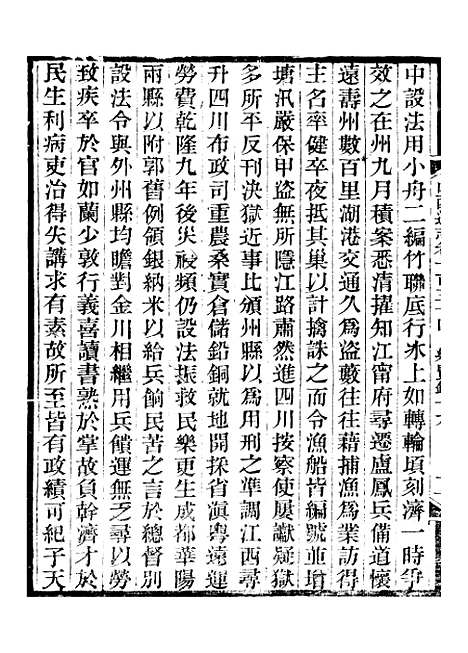 中設法用小舟二編竹聯底行氷上如轉輪頃刻濟一時爭
效之在州九月積案悉清擢知江甯府尋遷廬鳳兵備道懷
遠壽州數百里湖港交通久爲盜藪往往藉捕漁爲業訪得
主名率健卒夜抵其巢以計擒誅之而令漁船皆編號並增
塘汛嚴保甲盜無所隱江路肅然進四川按察使屢讞疑獄
多所平反刊決獄近事比頒州縣以爲用刑之準調江西尋
升四川布政司重農桑實倉儲鉛銅就地開採省滇粵遠運
勞費乾隆九年後災祲頻仍設法振救民樂更生成都華陽
兩縣以附郭舊例領銀納米以給兵餉民苦之言於總督別
設法令與外州縣均贍對金川相繼用兵饋運無乏尋以勞
致疾卒於官如蘭少敦行義喜讀書熟於掌故負幹濟才於
民生利病吏治得失講求有素故所至皆有政績可紀子天